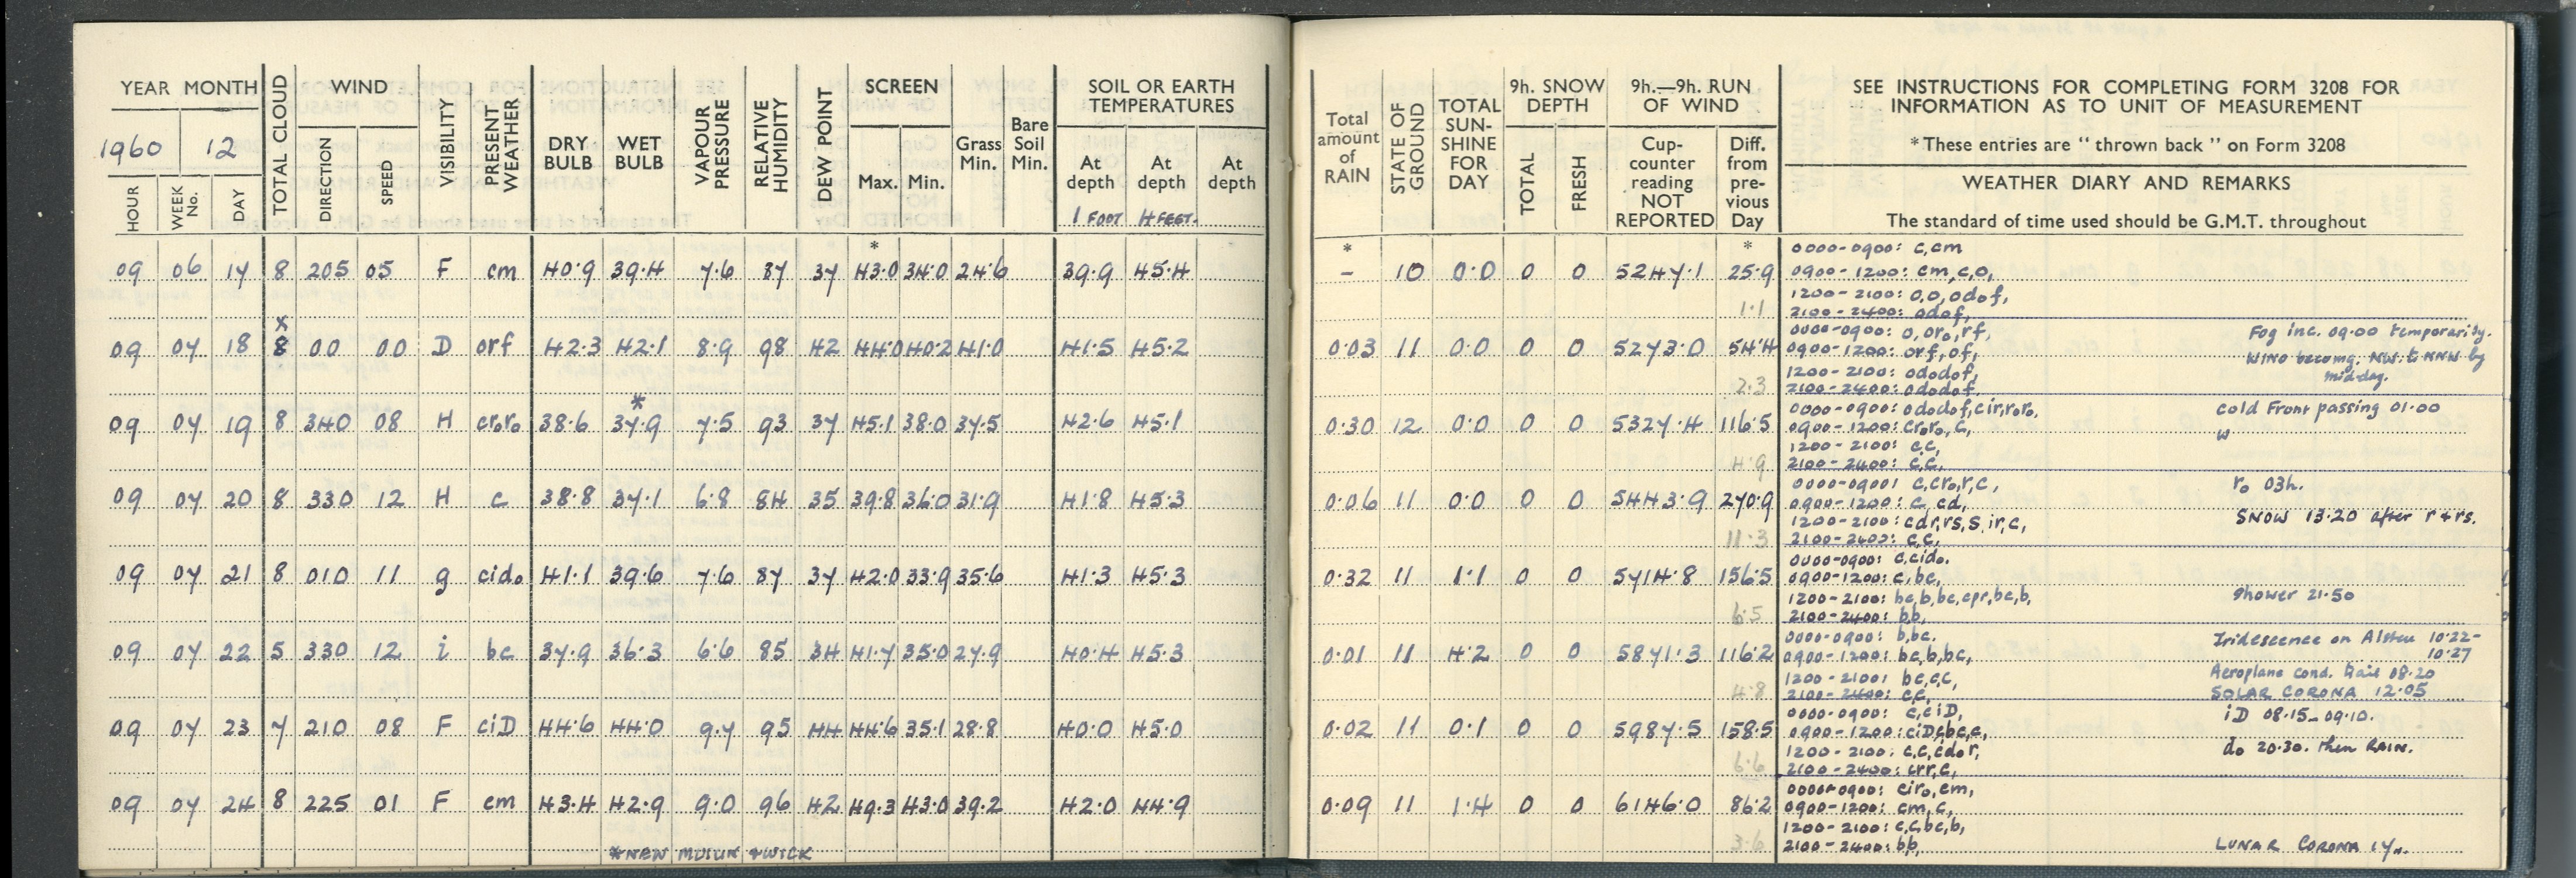 YEAR MONTH TOTAL CLOUD WIND VISIBILITY PRESENT WEATHER DRY BULB WET BULB VAPOUR PRESSURE RELATIVE HUMIDITY DEW POINT SCREEN Grass Min. Bare Soil Min. SOIL OR EARTH TEMPERATURES
1960 12
HOUR WEEK No. DAY DIRECTION SPEED Max. Min. At depth At depth At depth
1 FOOT 4 FEET.
*
09 06 17 8 205 05 F cm 40.9 39.4 7.6 87 37 43.0 34.0 24.6 39.9 45.4
x
09 07 18 8 00 00 D orf 42.3 42.1 8.9 98 42 44.0 40.2 41.0 41.5 45.2
*
09 07 19 8 340 08 H cr₀r₀ 38.6 37.9 7.5 93 37 45.1 38.0 37.5 42.6 45.1
09 07 20 8 330 12 H c 38.8 37.1 6.8 84 35 39.8 36.0 31.9 41.8 45.3
09 07 21 8 010 11 g cid₀ 41.1 39.6 7.6 87 37 42.0 33.9 35.6 41.3 45.3
09 07 22 5 330 12 i bc 37.9 36.3 6.6 85 34 41.7 35.0 27.9 40.4 45.3
09 07 23 7 210 08 F ciD 44.6 44.0 9.7 95 44 44.6 35.1 28.8 40.0 45.0
09 07 24 8 225 01 F cm 43.4 42.9 9.0 96 42 49.3 43.0 39.2 42.0 44.9
*NEW MUSLIN + WICK
Total amount of RAIN STATE OF GROUND TOTAL SUN-SHINE FOR DAY 9h. SNOW DEPTH 9h.—9h. RUN OF WIND
TOTAL FRESH Cup-counter reading NOT REPORTED Diff. from pre-vious Day
SEE INSTRUCTIONS FOR COMPLETING FORM 3208 FOR
INFORMATION AS TO UNIT OF MEASUREMENT
* These entries are " thrown back " on Form 3208
WEATHER DIARY AND REMARKS
The standard of time used should be G.M.T. throughout
* *
0000-0900: c,cm
- 10 0.0 0 0 5247.1 25.9 0900-1200: cm,c,o,
1.1 1200-2100: o,o,od₀f,
2100-2400: od₀f,
0000-0900: o,or₀,rf, Fog inc. 09.00 temporarily.
0.03 11 0.0 0 0 5273.0 54.4 0900-1200: orf,of, WIND becomg. NW. to NNW by
1200-2100: od₀d₀f, mid-day.
2.3 2100-2400: od₀d₀f.
0000-0900: od₀d₀f,cir,r₀r₀, Cold Front passing 01.00
0.30 12 0.0 0 0 5327.4 116.5 0900-1200: cr₀r₀,c, W
1200-2100: c,c,
4.9 2100-2400: c,c,
0000-0900: c,cr₀,r,c, r₀ 03h.
0.06 11 0.0 0 0 5443.9 270.9 0900-1200: c, cd,
1200-2100: cdr,rs,s,ir,c, SNOW 13.20 after r + rs.
11.3 2100-2400: c,c,
0000-0900: c,cid₀.
0.32 11 1.1 0 0 5714.8 156.5 0900-1200: c,bc,
1200-2100: bc,b,bc,cpr,bc,b, Shower 21.50
6.5 2100-2400: b,b,
0000-0900: b,bc. Iridescence on Alstcu 10.22-
0.01 11 4.2 0 0 5871.3 116.2 0900-1200: bc,b,bc, 10.27
1200-2100: bc,c,c, Aeroplane Cond. trail 08.20
4.8 2100-2400: c,c, SOLAR CORONA 12.05
0000-0900: c,ciD, iD 08.15-09.10.
0.02 11 0.1 0 0 5987.5 158.5 0900-1200: ciD,c,bc,c,
1200-2100: c,c,cd₀r, d₀ 20.30. then RAIN.
6.6 2100-2400: crr,c,
0000-0900: cir₀,cm,
0.09 11 1.4 0 0 6146.0 86.2 0900-1200: cm,c,
1200-2100: c,c,bc,b,
3.6 2100-2400: b,b, LUNAR CORONA 17h.